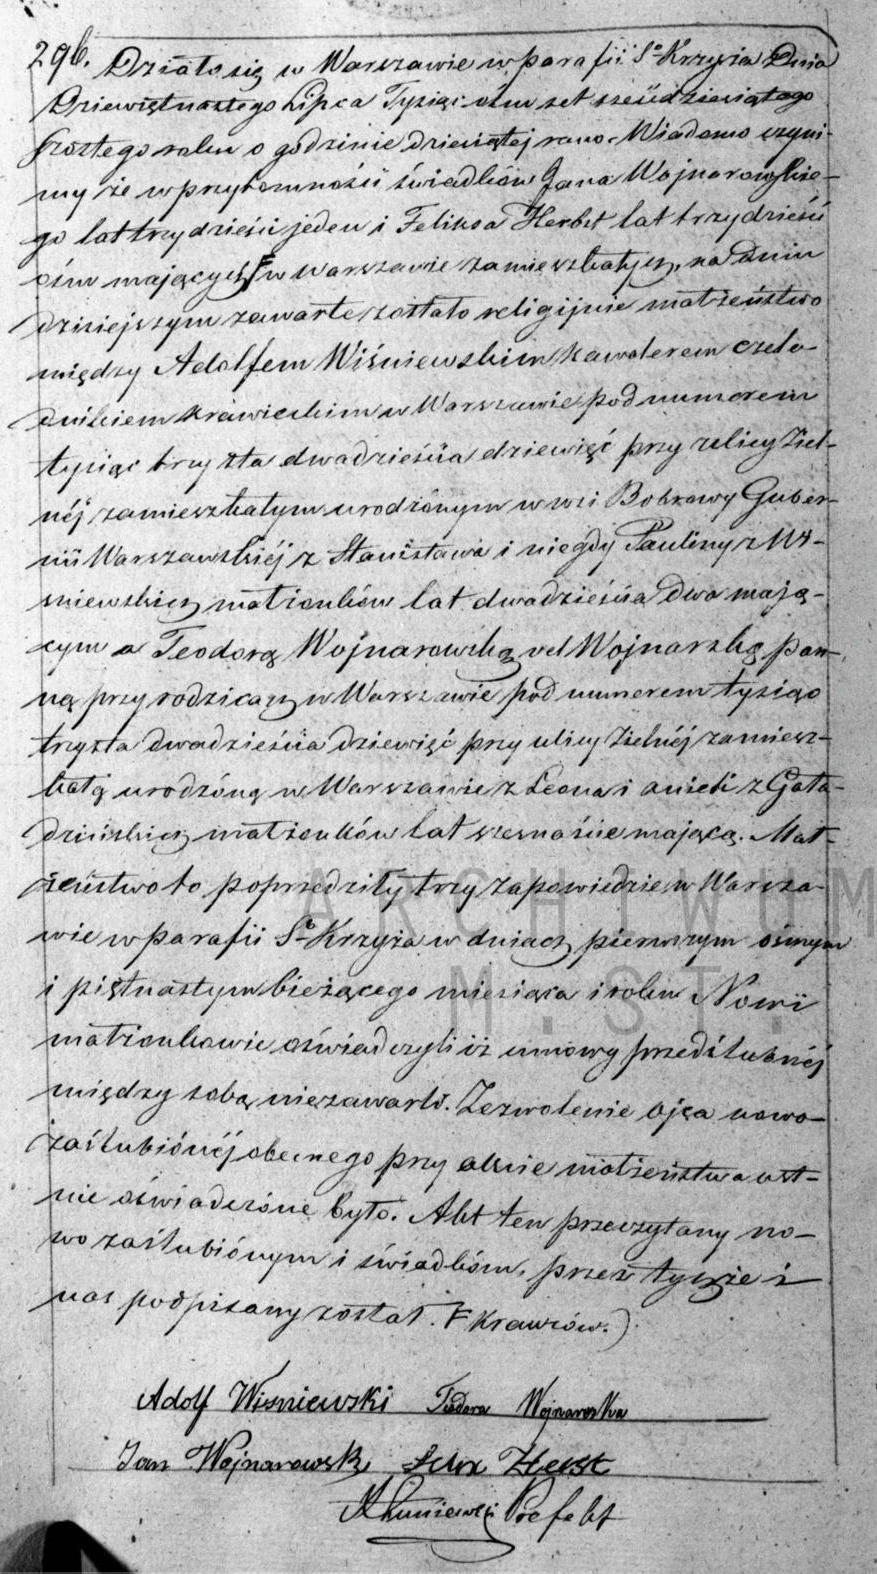 296. Działo się w Warszawie w parafii Sº Krzyża Dnia
Dziewiętnastego Lipca Tysiąc ośm set sześćdziesiątego
szóstego roku o godzinie dziewiątej rano. Wiadomo czyni-
my że w przytomności świadków Jana Wojnarowskie-
go lat trzydzieści jeden i Felixa Herbst lat trzydzieści
ośm mających F w Warszawie zamieszkałych, na dniu
dzisiejszym zawarte zostało religijnie małżeństwo
między Adolfem Wiśniewskim kawalerem czela-
dnikiem krawieckim w Warszawie pod numerem
tysiąc trzysta dwadzieścia dziewięć przy ulicy Ziel-
néj zamieszkałym urodzonym w wsi Bobrowy Guber-
nii Warszawskiéj z Stanisława i niegdy Pauliny z Wi-
śniewskich małżonków lat dwadzieścia dwa mają-
cym a Teodorą Wojnarowską vel Wojnarską pan-
ną przy rodzicach w Warszawie pod numerem tysiąc
trzysta dwadzieścia dziewięć przy ulicy Zielnéj zamiesz-
kałą urodzoną w Warszawie z Leona i Anieli z Gała-
dzińskich małżonków lat szesnaście mającą. Mał-
żeństwo to poprzedziły trzy zapowiedzie w Warsza-
wie w parafii Sº Krzyża w dniach pierwszym ósmym
i piętnastym bieżącego miesiąca i roku Nowi
małżonkowie oświadczyli iż umowy przedślubnéj
między sobą niezawarli. Zezwolenie ojca nowo-
zaślubionéj obecnego przy akcie małżeństwa ust-
nie oświadczone było. Akt ten przeczytany no-
wozaślubionym i świadkom, przez tychże i
nas podpisany został. F Krawców.)
ARCHIWUM
M. ST.
Adolf Wiśniewski Teodora Wojnarowska
Jan Wojnarowski Felix Herbst
Prefekt